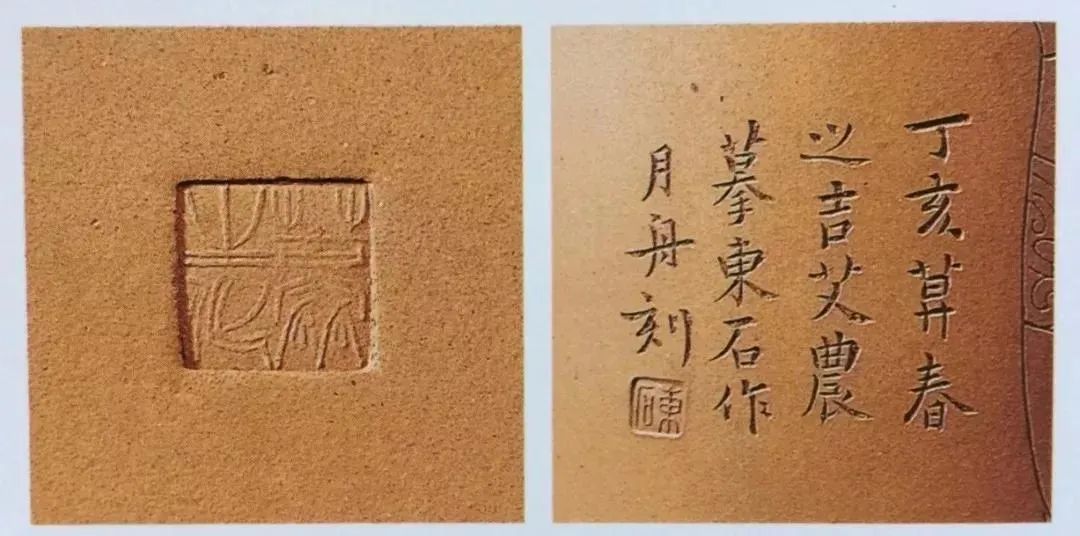 丁亥莫春
之吉艾農
摹東石作
月舟刻